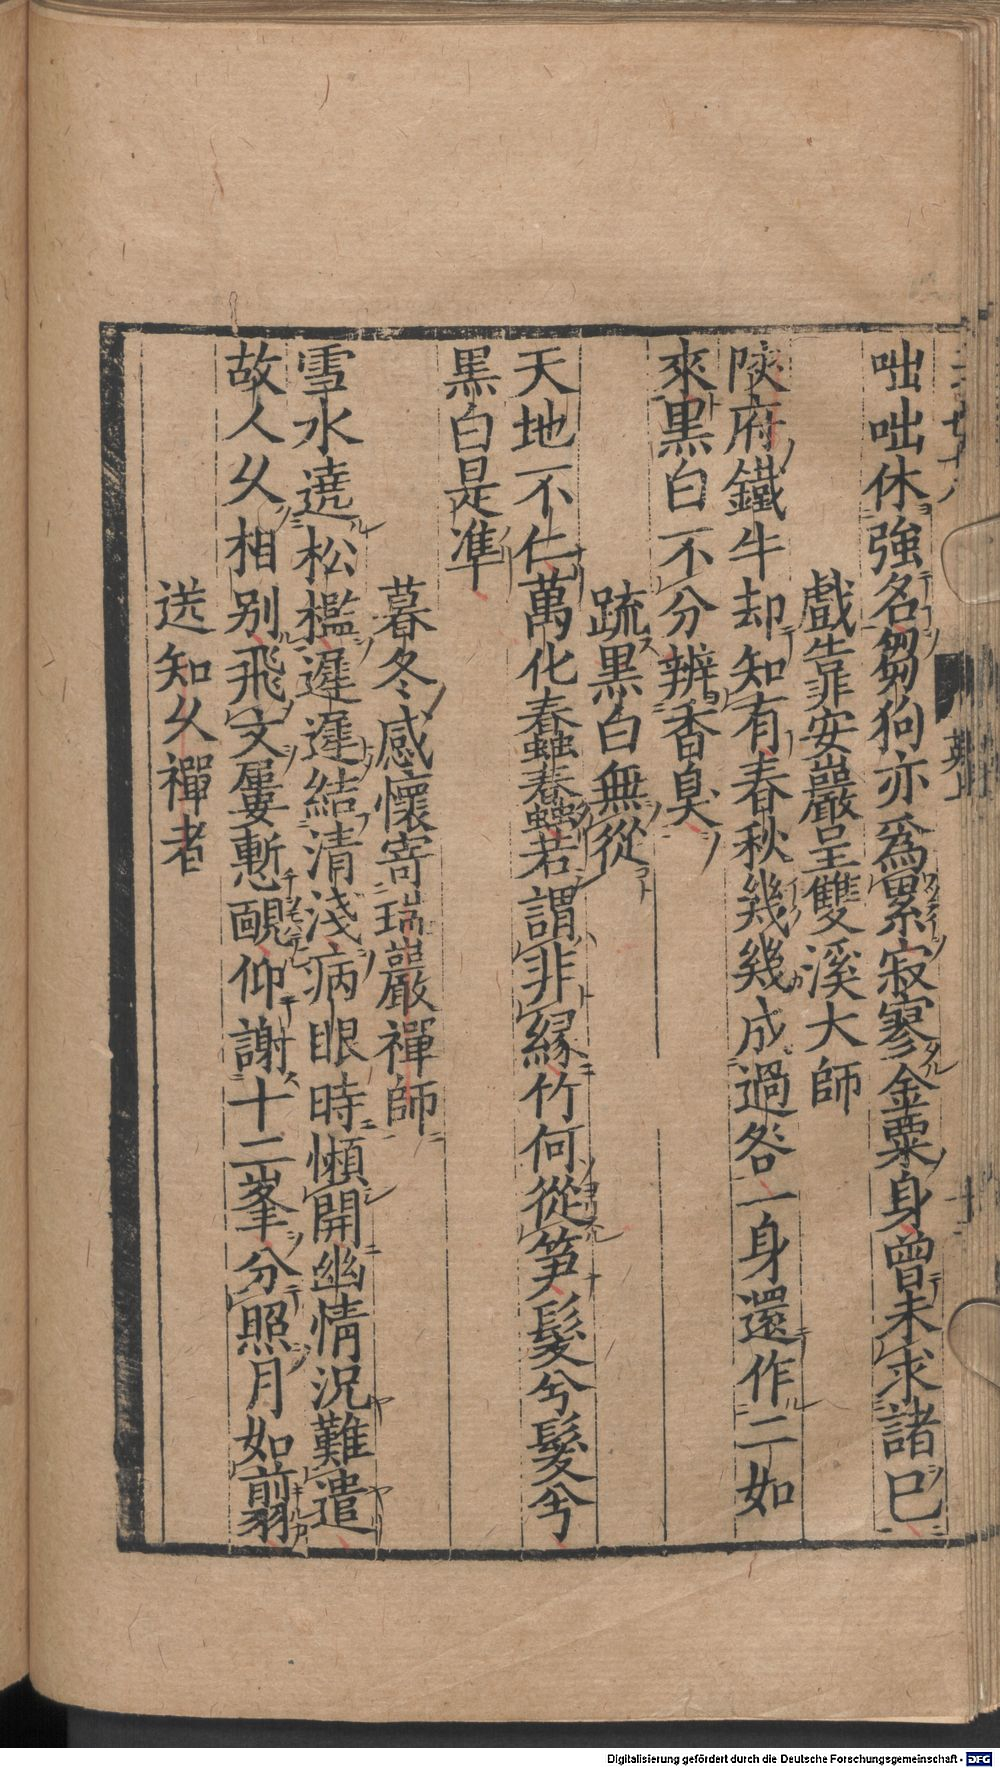 咄咄休強名芻狗亦爲累寂寥金粟身曾未求諸己
戲靠安巖呈雙溪大師
陝府鐵牛却知有春秋幾幾成過咎一身還作二如
來黒白不分辨香臭
䟽黒白無從
天地不仁萬化春蟲春蟲若謂非縁竹何從笋髮兮髮兮
黒白是準
暮冬感懷寄瑞巖禪師
雪水遶松檻遲遲結清淺病眼時懶開幽情況難遣
故人久相別飛文屢慙靦仰謝十二峯分照月如翦
送知久禪者
Digitalisierung gefördert durch die Deutsche Forschungsgemeinschaft - DFG